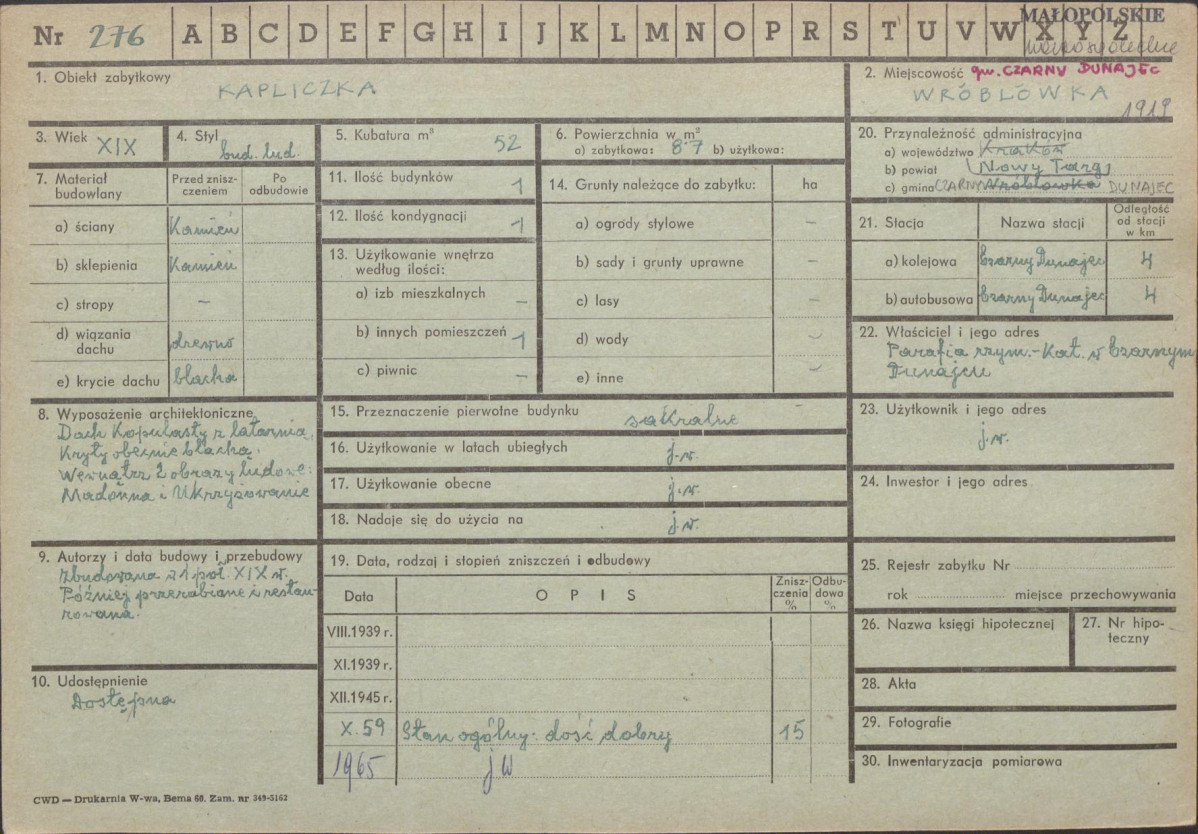 Nr 276 A B C D E F G H I J K L M N O P R S T U V W X Y Z
MAŁOPOLSKIE
1. Obiekt zabytkowy
KAPLICZKA
2. Miejscowość gm. CZARNY DUNAJEC
WRÓBLÓWKA
1919
3. Wiek XIX
4. Styl bud. lud.
5. Kubatura m³ 52
6. Powierzchnia w m²
a) zabytkowa: 8.7 b) użytkowa:
7. Materiał budowlany
Przed znisz-
czeniem
Po
odbudowie
a) ściany Kamień
b) sklepienia Kamień
c) stropy –
d) wiązania
dachu drewno
e) krycie dachu blacha
8. Wyposażenie architektoniczne
Dach Kopulasty z latarnią,
Kryty obecnie blachą.
Wewnątrz 2 obrazy ludowe:
Madonna i Ukrzyżowanie
9. Autorzy i data budowy i przebudowy
Zbudowana w 1 poł. XIX w.
Później przerabiane i restau-
rowana.
10. Udostępnienie
Dostępna
11. Ilość budynków 1
12. Ilość kondygnacji 1
13. Użytkowanie wnętrza
według ilości:
a) izb mieszkalnych –
b) innych pomieszczeń 1
c) piwnic –
14. Grunty należące do zabytku: ha
a) ogrody stylowe –
b) sady i grunty uprawne –
c) lasy –
d) wody –
e) inne –
15. Przeznaczenie pierwotne budynku sakralne
16. Użytkowanie w latach ubiegłych j.w.
17. Użytkowanie obecne j.w.
18. Nadaje się do użycia na j.w.
19. Data, rodzaj i stopień zniszczeń i odbudowy
Data OPIS Znisz-
czenia
%
Odbu-
dowa
%
VIII.1939 r.
XI.1939 r.
XII.1945 r.
X.59 Stan ogólny: dość dobry 15
1965 j W
20. Przynależność administracyjna
a) województwo Kraków
b) powiat Nowy Targ
c) gmina CZARNY Wróblówka DUNAJEC
21. Stacja Nazwa stacji Odległość
od stacji
w km
a) kolejowa Czarny Dunajec 4
b) autobusowa Czarny Dunajec 4
22. Właściciel i jego adres
Parafia rzym.-Kat. w Czarnym
Dunajcu
23. Użytkownik i jego adres
j.w.
24. Inwestor i jego adres
25. Rejestr zabytku Nr
rok miejsce przechowywania
26. Nazwa księgi hipotecznej
27. Nr hipo-
teczny
28. Akta
29. Fotografie
30. Inwentaryzacja pomiarowa
CWD — Drukarnia W-wa, Bema 60. Zam. nr 349-5162